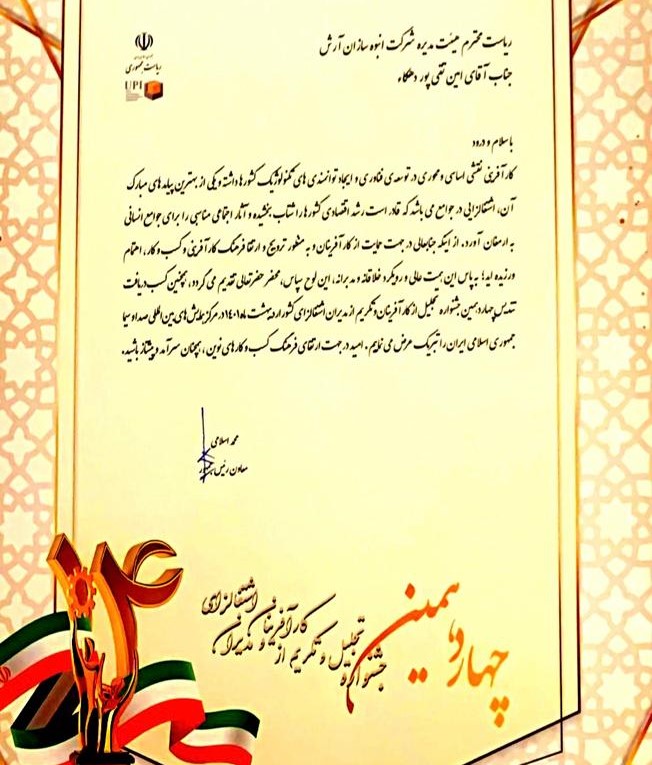 ریاست جمهوری
UPI
ریاست محترم هیئت مدیره شرکت انبوه سازان آرش
جناب آقای امین تقی پور دهگاء
با سلام و درود
کارآفرینی نقشی اساسی و محوری در توسعه ی فناوری و ایجاد توانمندی های تکنولوژیک کشورها داشته و یکی از بهترین پیامدهای مبارک
آن، اشتغالزایی در جوامع می باشد که قادر است رشد اقتصادی کشورها را شتاب بخشیده و آثار اجتماعی مناسبی را برای جوامع انسانی
به ارمغان آورد. از اینکه جنابعالی در جهت حمایت از کارآفرینان و به منظور ترویج و ارتقا فرهنگ کارآفرینی و کسب و کار، اهتمام
ورزیده اید؛ به پاس این همت عالی و رویکرد خلاقانه و مدبرانه، این لوح سپاس، محضر حضرتعالی تقدیم می گردد، همچنین کسب دریافت
تندیس چهاردهمین جشنواره تجلیل از کارآفرینان و تکریم از مدیران اشتغالزای کشور اردیبهشت در مرکز همایش های بین المللی صدا و سیما
جمهوری اسلامی ایران را تبریک عرض می نمایم. امید در جهت ارتقای فرهنگ کسب و کارهای نوین، همچنان سرآمد و پیشتاز باشید.
محمد اسلامی
معاون رئیس جمهور
۱۴
چهاردهمین
جشنواره
تجلیل و تکریم از
کارآفرینان و مدیران
اشتغالزای